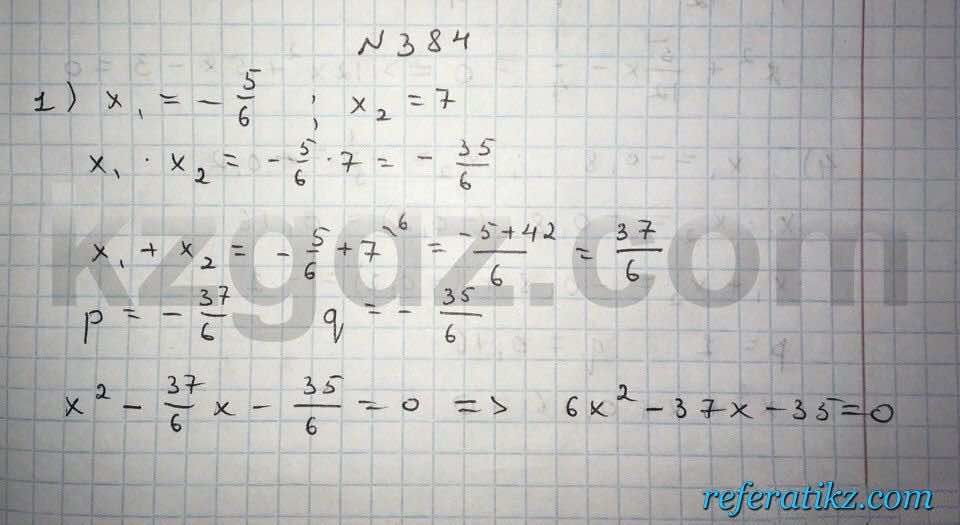 N 384
1) x₁ = - 5/6 ; x₂ = 7
x₁ · x₂ = - 5/6 · 7 = - 35/6
x₁ + x₂ = - 5/6 + 7\⁶ = (-5+42)/6 = 37/6
kzgdz.com
p = - 37/6 q = - 35/6
x² - 37/6 x - 35/6 = 0 => 6x² - 37x - 35 = 0
referatikz.com